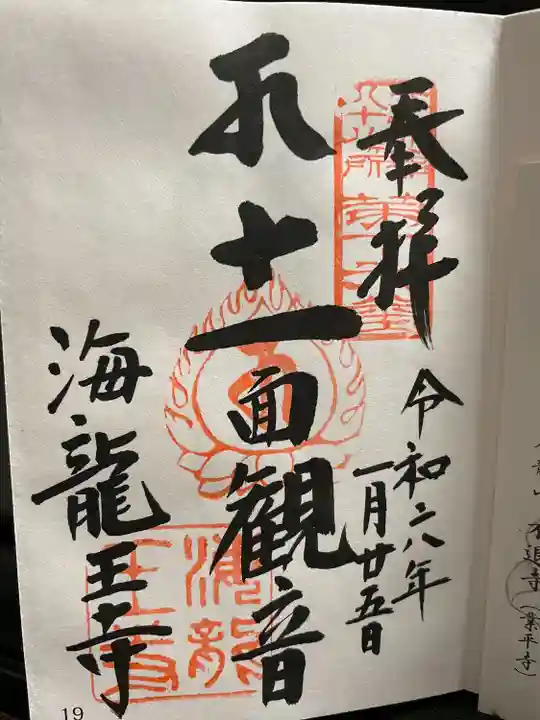 奉拝
令和六年
一月廿五日
十一面観音
海龍王寺
海龍
王寺
不退寺(業平寺)
19